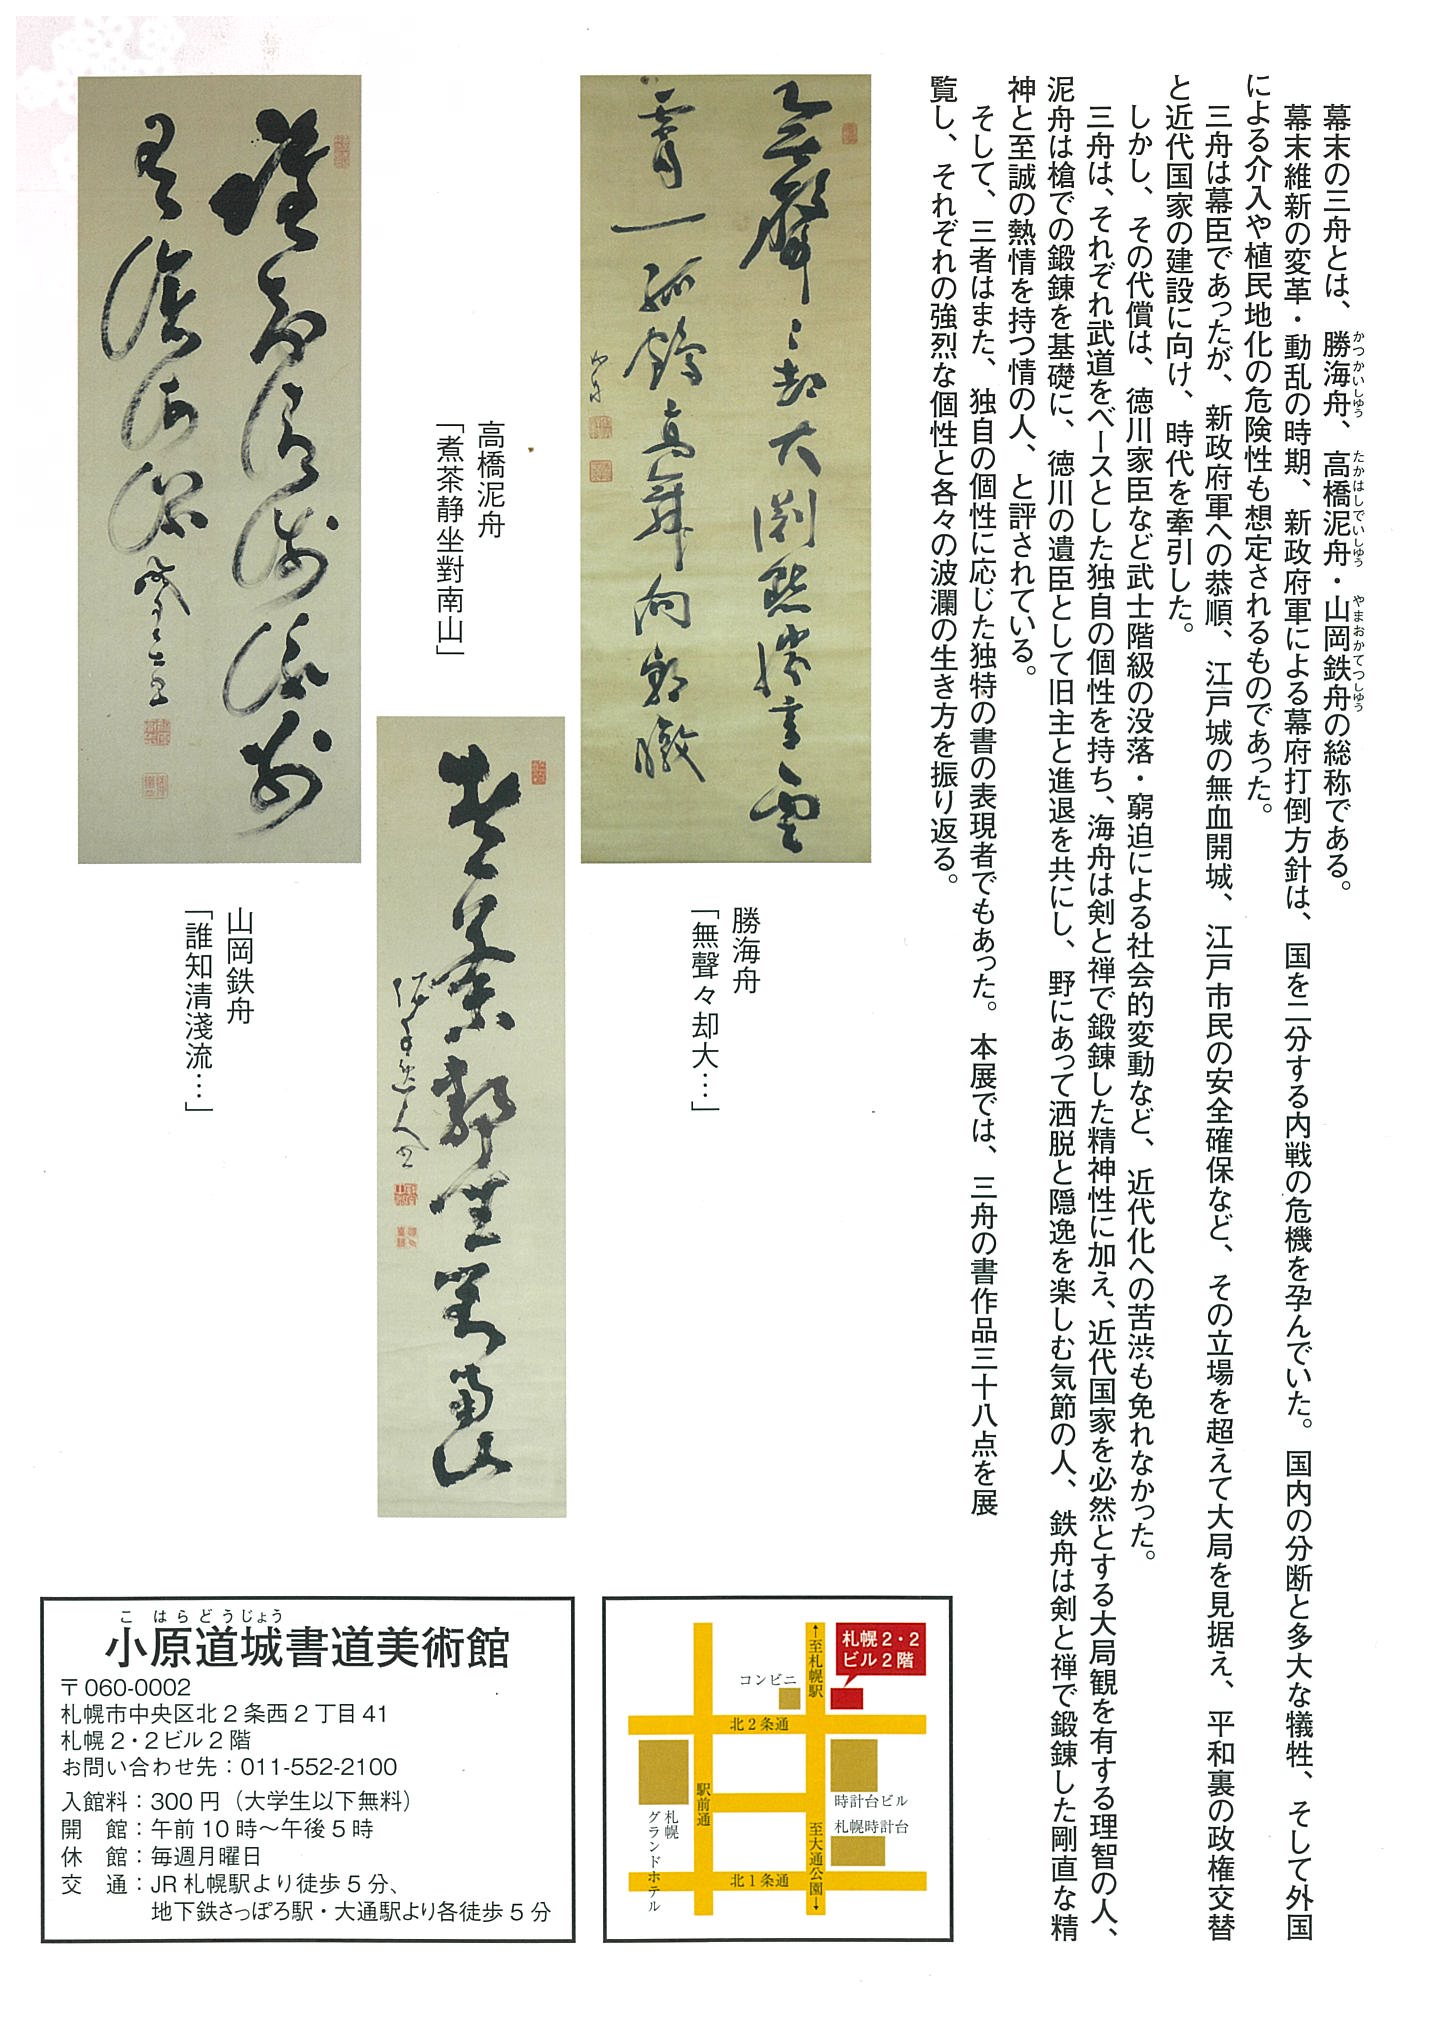 幕末の三舟とは、勝海舟、高橋泥舟・山岡鉄舟の総称である。
かつかいしゅう
たかはしでいしゅう
やまおかてつしゅう
幕末維新の変革・動乱の時期、新政府軍による幕府打倒方針は、国を二分する内戦の危機を孕んでいた。国内の分断と多大な犠牲、そして外国
による介入や植民地化の危険性も想定されるものであった。
三舟は幕臣であったが、新政府軍への恭順、江戸城の無血開城、江戸市民の安全確保など、その立場を超えて大局を見据え、平和裏の政権交替
と近代国家の建設に向け、時代を牽引した。
しかし、その代償は、徳川家臣など武士階級の没落・窮迫による社会的変動など、近代化への苦渋も免れなかった。
三舟は、それぞれ武道をベースとした独自の個性を持ち、海舟は剣と禅で鍛錬した精神性に加え、近代国家を必然とする大局観を有する理智の人、
泥舟は槍での鍛錬を基礎に、徳川の遺臣として旧主と進退を共にし、野にあって洒脱と隠逸を楽しむ気節の人、鉄舟は剣と禅で鍛錬した剛直な精
神と至誠の熱情を持つ情の人、と評されている。
そして、三者はまた、独自の個性に応じた独特の書の表現者でもあった。本展では、三舟の書作品三十八点を展
覧し、それぞれの強烈な個性と各々の波瀾の生き方を振り返る。
勝海舟
「無聲々却大…」
高橋泥舟
「煮茶静坐對南山」
山岡鉄舟
「誰知清淺流…」
煮茶静坐對南山
こはらどうじょう
小原道城書道美術館
〒060-0002
札幌市中央区北2条西2丁目41
札幌2・2ビル2階
お問い合わせ先：011-552-2100
入館料：300円（大学生以下無料）
開　館：午前10時～午後5時
休　館：毎週月曜日
交　通：JR札幌駅より徒歩5分、
地下鉄さっぽろ駅・大通駅より各徒歩5分
札幌2・2
ビル2階
↑至札幌駅
コンビニ
北2条通
駅前通
時計台ビル
札幌時計台
札幌
グランドホテル
至大通公園↓
北1条通